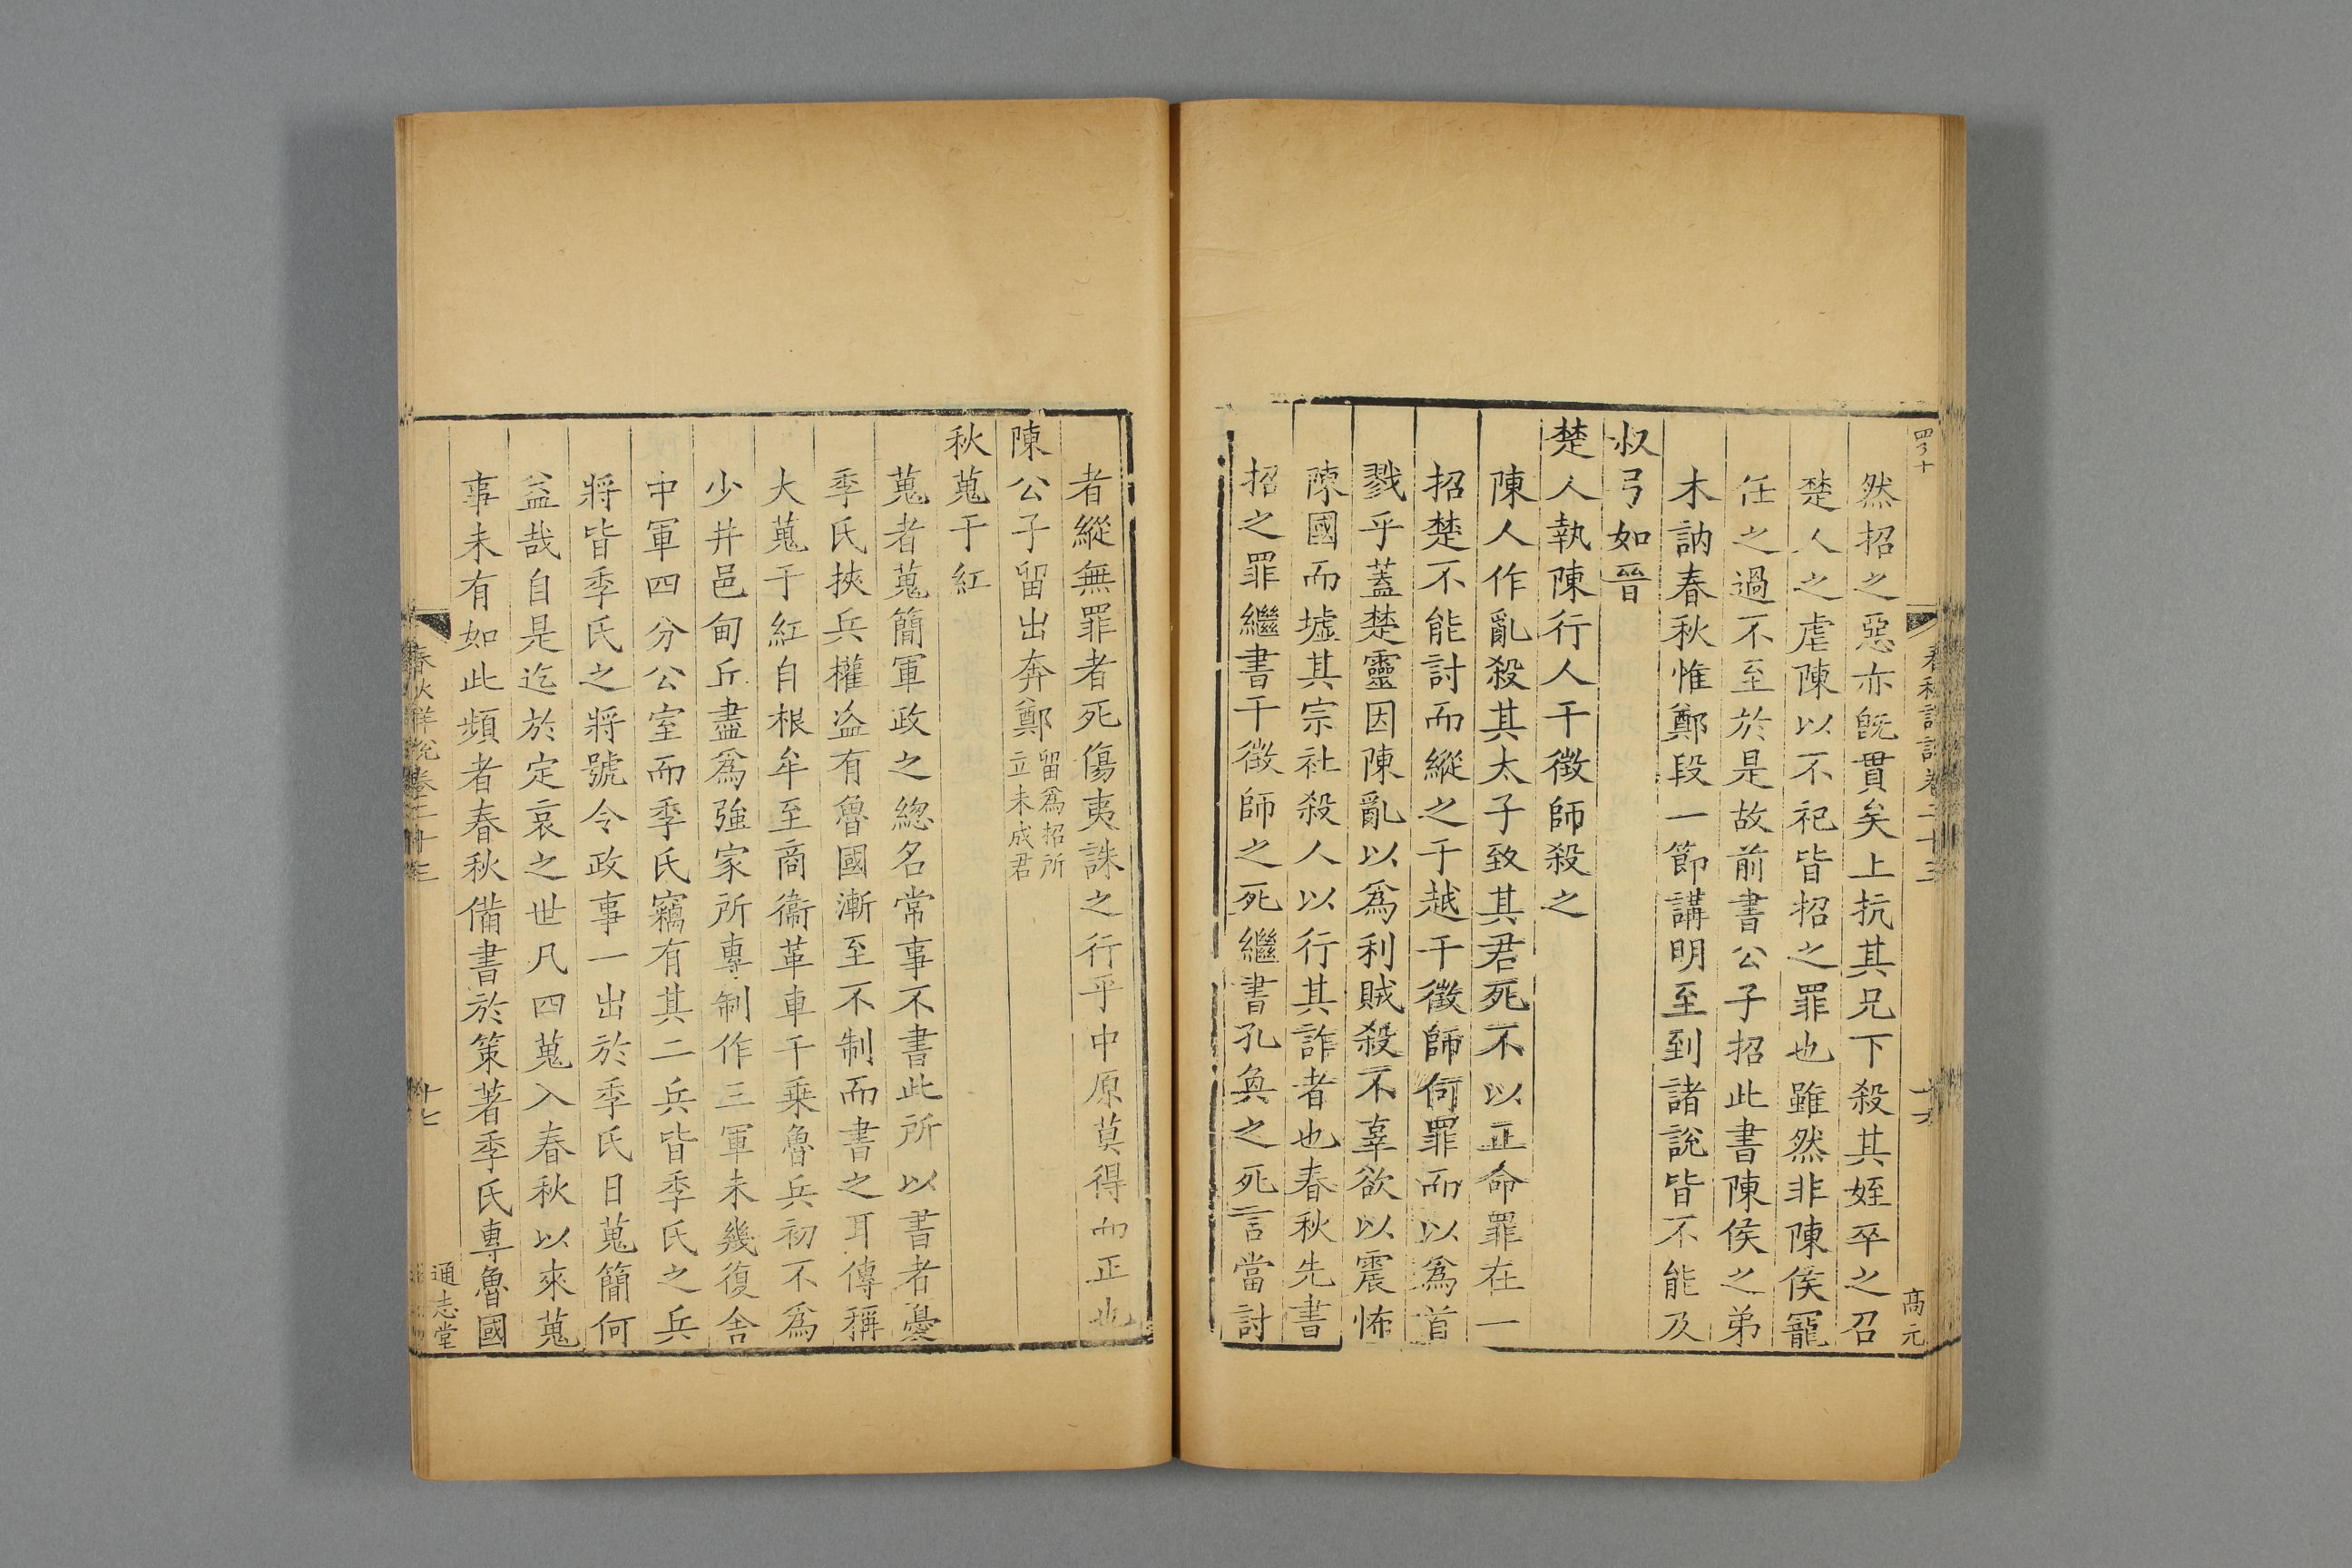 然招之惡亦旣貫矣上抗其兄下殺其姪卒之召
楚人之虐陳以不祀皆招之罪也雖然非陳侯寵
任之過不至於是故前書公子招此書陳侯之弟
木訥春秋惟鄭段一節講明至到諸說皆不能及
叔弓如晉
楚人執陳行人干徵師殺之
陳人作亂殺其太子致其君死不以正命罪在一
招楚不能討而縱之于越干徵師何罪而以爲首
戮乎蓋楚靈因陳亂以爲利賊殺不辜欲以震怖
陳國而墟其宗社殺人以行其詐者也春秋先書
招之罪繼書干徵師之死繼書孔奐之死言當討
高元
者縱無罪者死傷夷誅之行乎中原莫得而正也
陳公子留出奔鄭留爲招所
立未成君
秋蒐于紅
蒐者蒐簡軍政之緫名常事不書此所以書者憂
季氏挾兵權盗有魯國漸至不制而書之耳傳稱
大蒐于紅自根牟至商衞革車千乗魯兵初不爲
少井邑甸丘盡爲強家所專制作三軍未幾復舍
中軍四分公室而季氏竊有其二兵皆季氏之兵
將皆季氏之將號令政事一出於季氏日蒐簡何
益哉自是迄於定哀之世凡四蒐入春秋以來蒐
事未有如此頻者春秋備書於策著季氏專魯國
春秋詳說卷二十三
十七
通志堂